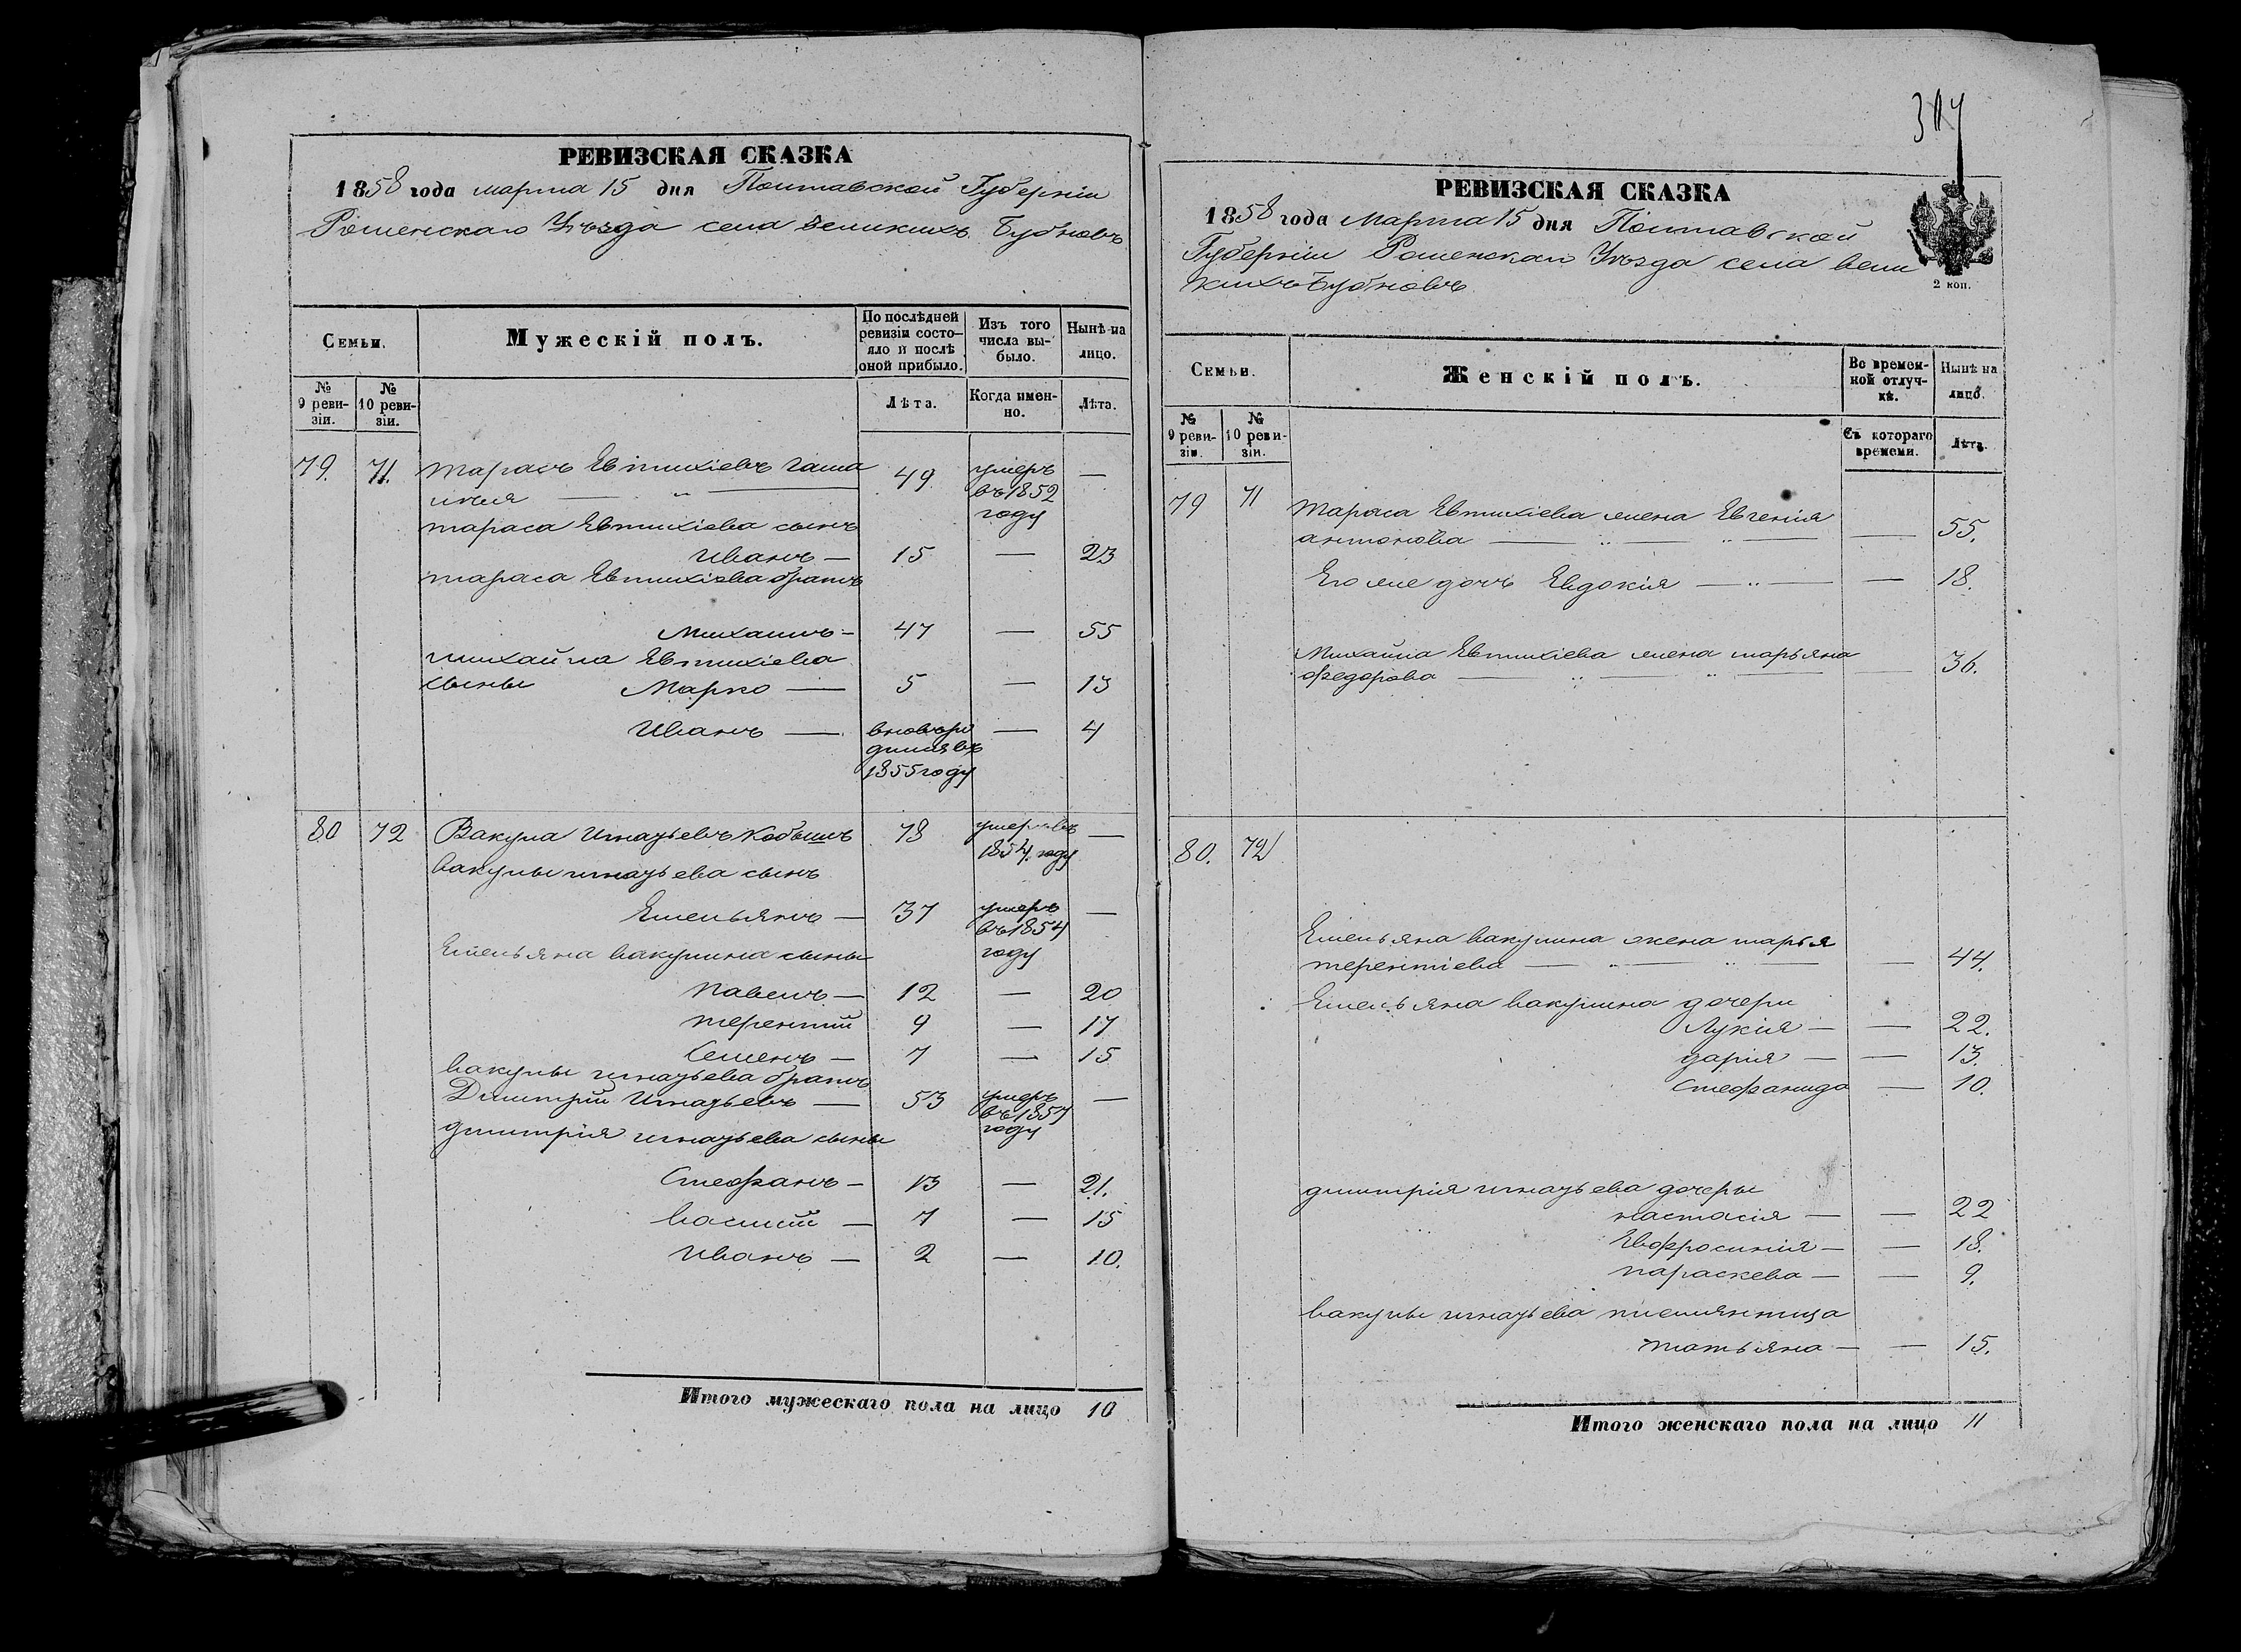 РЕВИЗСКАЯ СКАЗКА
1858 года марта 15 дня Полтавской Губерніи
Роменскаго Уѣзда села великихъ Бубновъ
Семьи.
Мужескій полъ.
По послѣдней ревизіи состо-яло и послѣ оной прибыло.
Изъ того числа вы-было.
Нынѣ на лицо.
№ 9 реви-зіи.
№ 10 реви-зіи.
Лѣта.
Когда имен-но.
Лѣта.
79. 71. Тарасъ Евтихіевъ 49 умеръ въ 1852 году —
тараса Евтихіева сынъ
Иванъ — 15 — 23
тараса Евтихіева братъ
Михаилъ — 47 — 55
михайла Евтихіева
сыны Марко — 5 — 13
Иванъ — вновьро дился въ 1855 году — 4
80 72 Вакула Игнатьевъ Кобышъ 78 умеръ въ 1854. году —
вакулы игнатьева сынъ
Емельянъ — 37 умеръ въ 1854 году —
Емельяна вакулина сыны
павелъ — 12 — 20
терентий 9 — 17
Семенъ — 7 — 15
вакулы игнатьева братъ
Димитрий Игнатьевъ — 53 умеръ въ 1857 году —
димитрія игнатьева сыны
Стефанъ — 13 — 21.
василий — 7 — 15
Иванъ — 2 — 10.
Итого мужескаго пола на лицо 10
РЕВИЗСКАЯ СКАЗКА
1858 года Марта 15 дня Полтавской
Губерніи Роменскаго Уѣзда села вели
кихъ Бубновъ
2 коп.
Семьи.
Женскій полъ.
Во времен-ной отлуч-кѣ.
Нынѣ на лицо.
№ 9 реви-зіи.
№ 10 реви-зіи.
Съ котораго времени.
Лѣта.
79 71 Тараса Евтихіева жена Евгенія
антонова — 55.
Его же дочь Евдокія — — 18.
Михайла Евтихіева жена марьяна
федорова — 36.
80. 72
Емельяна вакулина жена марья
терентіева — — 44.
Емельяна вакулина дочери
Лукія — — 22.
дарія — — 13.
Стефанида — 10.
димитрія игнатьева дочеры
настасія — — 22
Евфросинія — — 18.
параскева — — 9.
вакулы игнатьева племянница
татьяна — — 15.
Итого женскаго пола на лицо 11